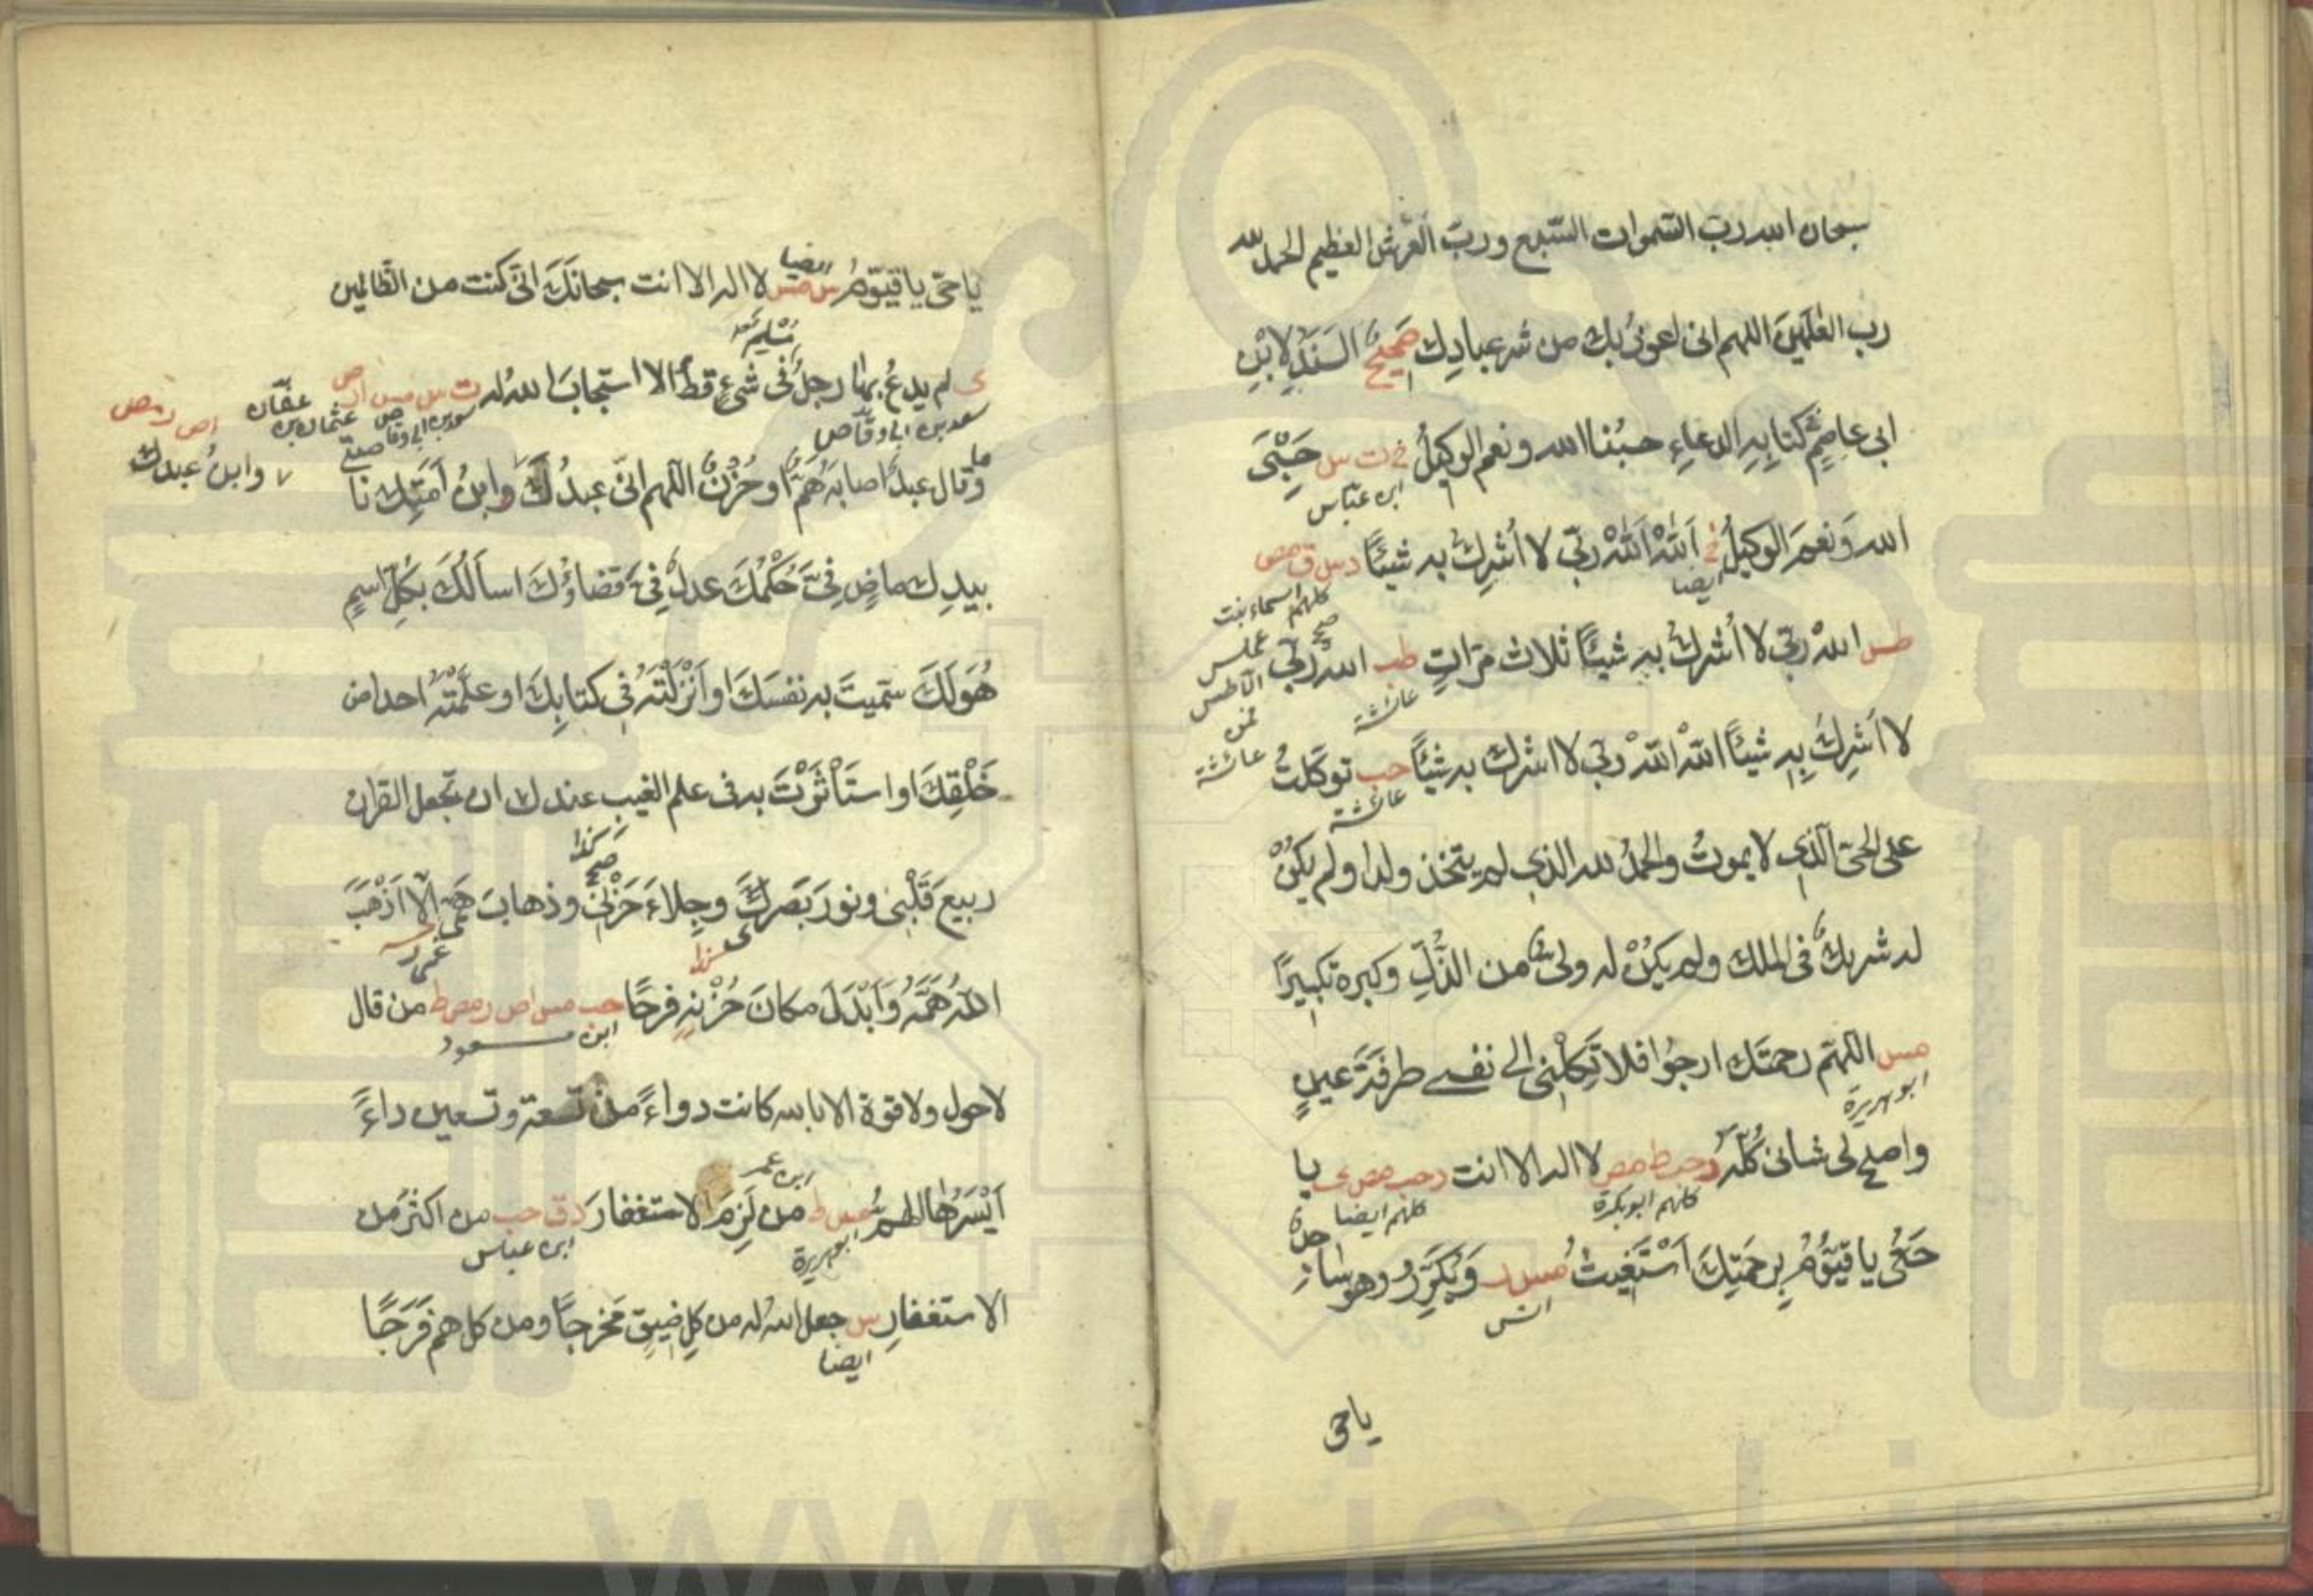 سبحان الله رب السموات السبع ورب العرش العظيم الحمد لله
رب العلمين اللهم انى اعوذ بك من شر عبادك صحيح السند لابن
ابى عاصم كتابه الدعاء حسبنا الله ونعم الوكيل خ ت س حسبى
ابن عباس
الله ونعم الوكيل خ الله الله ربى لا اشرك به شيئا د س ق مص
ايضا
كلهم اسماء بنت
عميس
طس الله ربى لا اشرك به شيئا ثلاث مرات طب الله ربى
عائشة
لا اشرك به شيئا الله الله ربى لا اشرك به شيئا حب توكلت
عائشة
عائشة
على الحى الذى لا يموت والحمد لله الذى لم يتخذ ولدا ولم يكن
له شريك فى الملك ولم يكن له ولى من الذل وكبره تكبيرا
مس اللهم رحمتك ارجوا فلا تكلنى الى نفسى طرفة عين
ابو هريرة
واصلح لى شانى كله د حب ط مص لا اله الا انت د حب مص ى يا
كلهم ابو بكرة
كلهم ايضا
حى يا قيوم برحمتك استغيث مس ويكرر وهو ساجد
انس
ياحى
ياحى يا قيوم س مس لا اله الا انت سبحانك انى كنت من الظالمين
ايضا
لم يدع بها رجل مسلم فى شىء قط الا استجاب الله له ت س مس ا ر ص
سعد بن ابى وقاص
سعد بن ابى وقاص
عثمان بن عفان
ما وقال عبد اصابه هم او حزن اللهم انى عبدك وابن امتك نا
وابن عبدك
بيدك ماض فى حكمك عدل فى قضاؤك اسالك بكل اسم
هو لك سميت به نفسك او انزلته فى كتابك او علمته احدا من
خلقك او استأثرت به فى علم الغيب عندك ان تجعل القران
ربيع قلبى ونور بصرى وجلاء حزنى وذهاب همى الا اذهب
الله همه وابدل مكان حزنه فرحا حب مس اص ر مص ط من قال
ابن مسعود
لا حول ولا قوة الا بالله كانت دواء من تسعة وتسعين داء
ايسرها الهم مس ط من لزم الاستغفار د ق حب من اكثر من
ابو هريرة
ابن عباس
الاستغفار س جعل الله له من كل ضيق مخرجا ومن كل هم فرجا
ايضا